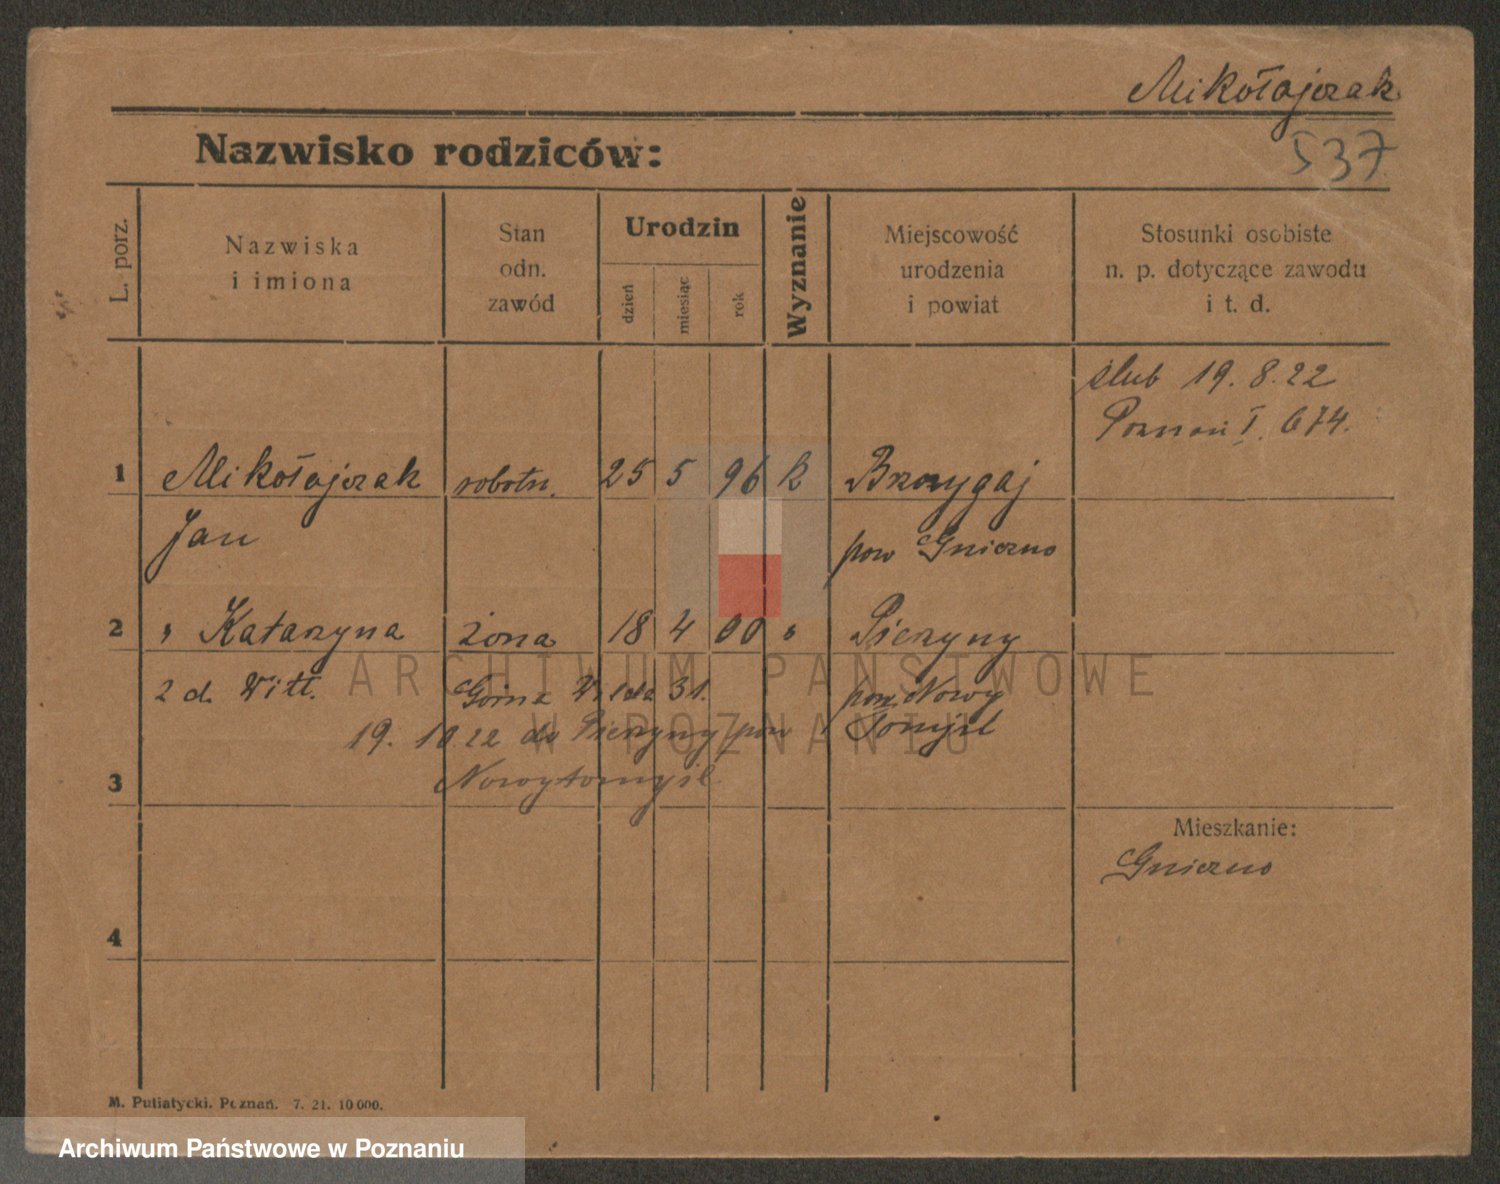 Mikołajczak
537
Nazwisko rodziców:
L. porz.
Nazwiska
i imiona
Stan
odn.
zawód
Urodzin
dzień
miesiąc
rok
Wyznanie
Miejscowość
urodzenia
i powiat
Stosunki osobiste
n. p. dotyczące zawodu
i t. d.
ślub 19. 8. 22
Poznań I. 674.
1 Mikołajczak robotn. 25 5 96 k
Jan pow Gniezno
2 " Katarzyna żona 18 4 00 " Pierzyny
2 d. Witt. Górna Wilda 31. pow. Nowy
Tomyśl
19. 10 22 do Pierzyny pow
Nowytomyśl
3
Mieszkanie:
Gniezno
4
M. Putiatycki. Poznań. 7. 21. 10 000.
ARCHIWUM PAŃSTWOWE
W POZNANIU
Archiwum Państwowe w Poznaniu